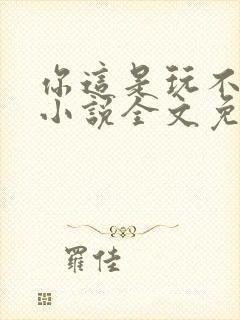 你這是玩不
小說全文免
羅佳